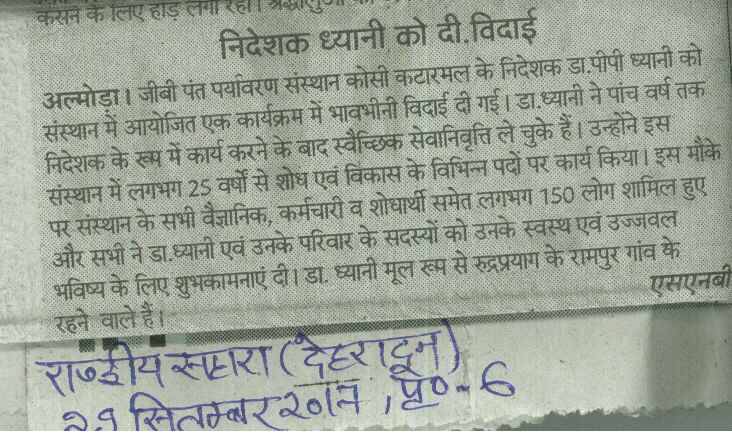 कसने के लिए होड़ लगी रही।
निदेशक ध्यानी को दी विदाई
अल्मोड़ा। जीबी पंत पर्यावरण संस्थान कोसी कटारमल के निदेशक डा.पीपी ध्यानी को
संस्थान में आयोजित एक कार्यक्रम में भावभीनी विदाई दी गई। डा.ध्यानी ने पांच वर्ष तक
निदेशक के रूप में कार्य करने के बाद स्वैच्छिक सेवानिवृत्ति ले चुके हैं। उन्होंने इस
संस्थान में लगभग 25 वर्षों से शोध एवं विकास के विभिन्न पदों पर कार्य किया। इस मौके
पर संस्थान के सभी वैज्ञानिक, कर्मचारी व शोधार्थी समेत लगभग 150 लोग शामिल हुए
और सभी ने डा.ध्यानी एवं उनके परिवार के सदस्यों को उनके स्वस्थ एवं उज्जवल
भविष्य के लिए शुभकामनाएं दी। डा. ध्यानी मूल रूप से रुद्रप्रयाग के रामपुर गांव के
रहने वाले हैं।
एसएनबी
राष्ट्रीय सहारा (देहरादून)
सितम्बर २०१७, पृ०-6